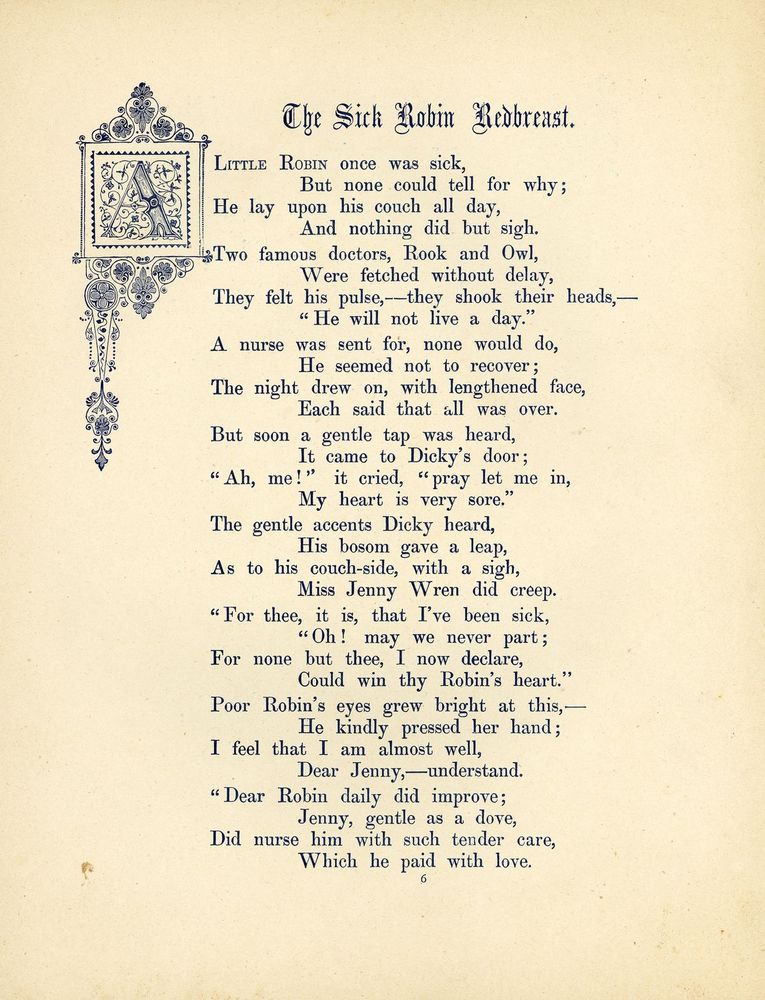 The Sick Robin Redbreast.
A LITTLE ROBIN once was sick,
But none could tell for why;
He lay upon his couch all day,
And nothing did but sigh.
Two famous doctors, Rook and Owl,
Were fetched without delay,
They felt his pulse,—they shook their heads,—
“He will not live a day.”
A nurse was sent for, none would do,
He seemed not to recover;
The night drew on, with lengthened face,
Each said that all was over.
But soon a gentle tap was heard,
It came to Dicky’s door;
“Ah, me!” it cried, “pray let me in,
My heart is very sore.”
The gentle accents Dicky heard,
His bosom gave a leap,
As to his couch-side, with a sigh,
Miss Jenny Wren did creep.
“For thee, it is, that I’ve been sick,
“Oh! may we never part;
For none but thee, I now declare,
Could win thy Robin’s heart.”
Poor Robin’s eyes grew bright at this,—
He kindly pressed her hand;
I feel that I am almost well,
Dear Jenny,—understand.
“Dear Robin daily did improve;
Jenny, gentle as a dove,
Did nurse him with such tender care,
Which he paid with love.
6